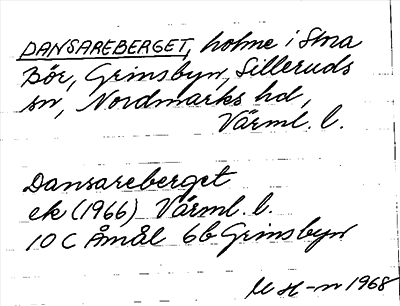 DANSAREBERGET, holme i Stora
Bör, Grinsbyn, Silleruds
sn, Nordmarks hd,
Värml. l.
Dansareberget
ek (1966) Värml. l.
10 C Åmål 6b Grinsbyn
M H-n 1968